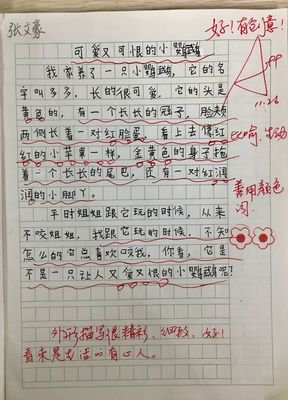 张文豪
好！有创意！
可爱又可恨的小鹦鹉
我家养了一只小鹦鹉，它的名
字叫多多，长的很可爱，它的头是
黄色的，有一个长长的冠子，脸颊
两侧长着一对红脸蛋，看上去像红
红的小苹果一样，金黄色的身子拖
着一个长长的尾巴，还有一对红润
润的小脚丫。
11.26
比喻，生动
善用颜色
词
平时姐姐跟它玩的时候，从来
不咬姐姐，我跟它玩的时候，不知
怎么的它总喜欢咬我，你看，它是
不是一只让人又爱恨的小鹦鹉呢？
外形描写很精彩、细致，好！
看来是生活的有心人。